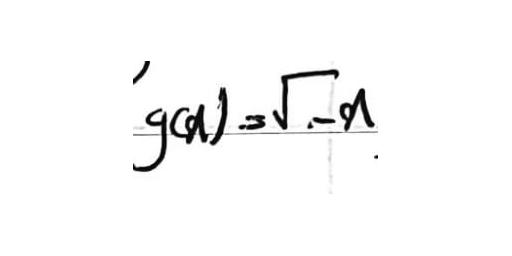 g(x) = √-x